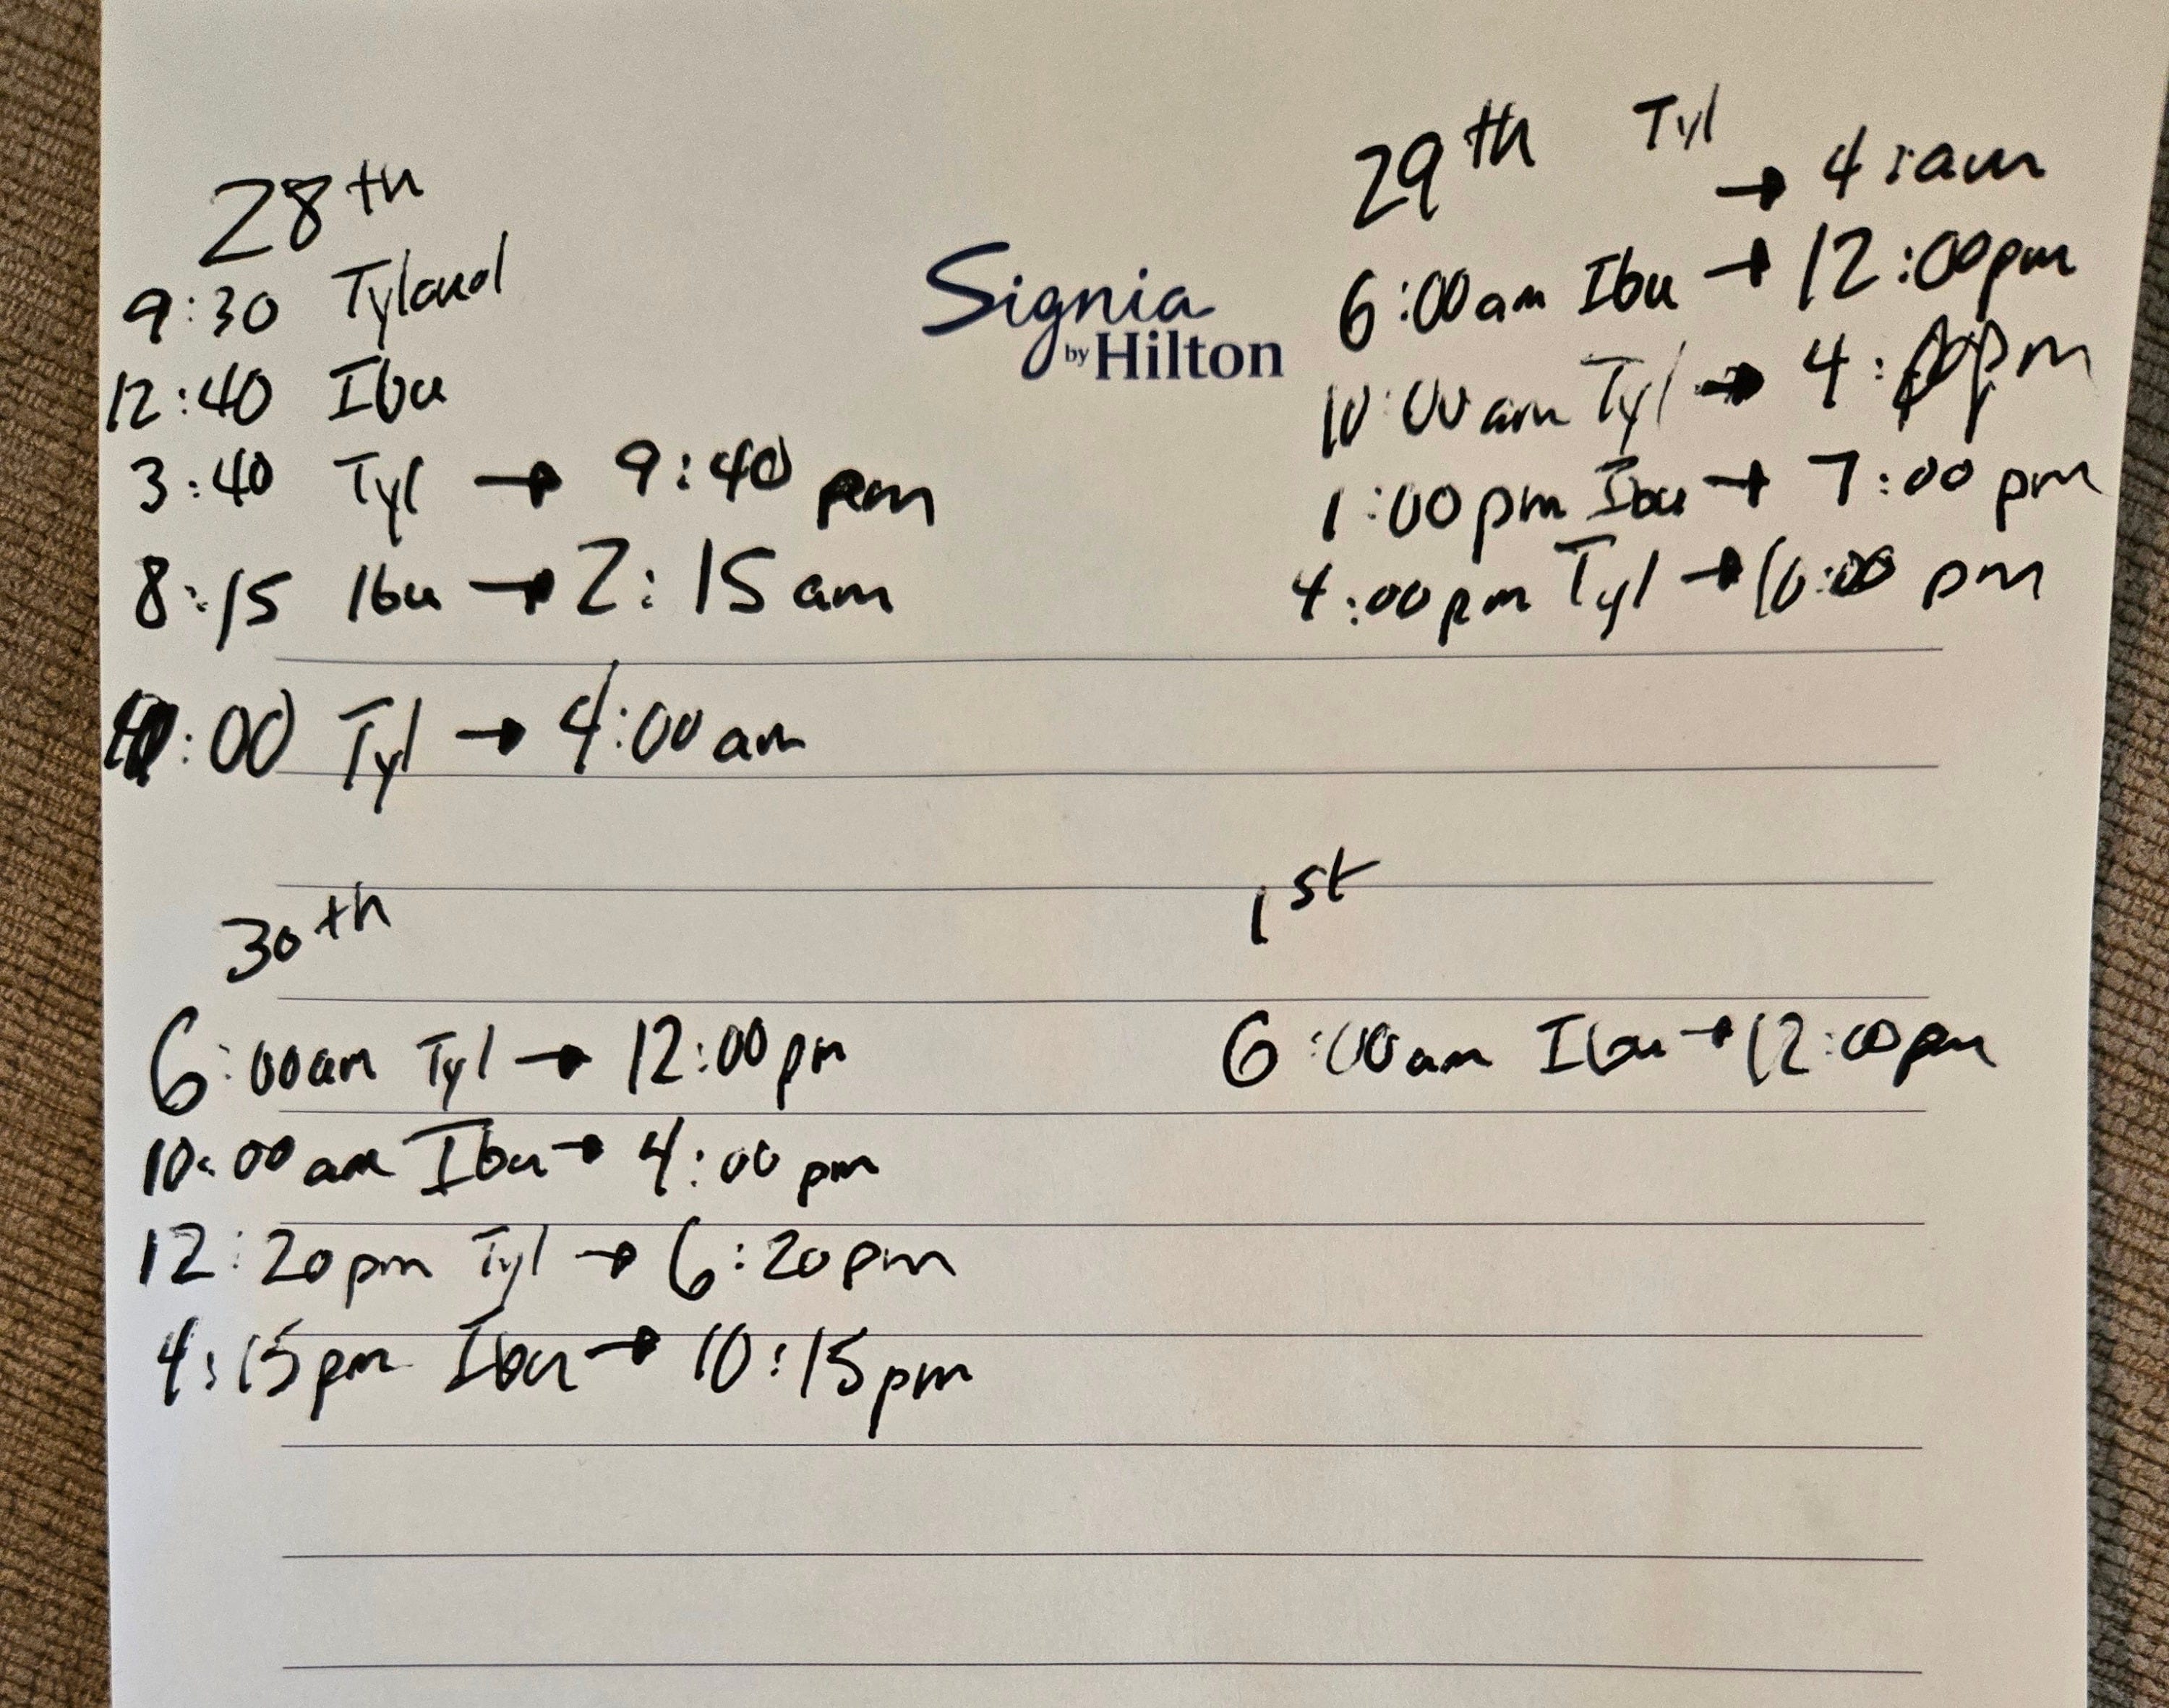 28th
9:30 Tylanol
12:40 Ibu
3:40 Tyl → 9:40 pm
8:15 Ibu → 2:15 am
:00 Tyl → 4:00 am
Signia
by Hilton
29th Tyl
→ 4:am
6:00 am Ibu → 12:00 pm
10:00 am Tyl → 4:00pm
1:00 pm Ibu → 7:00 pm
4:00 pm Tyl → 10:00 pm
30th
6:00am Tyl → 12:00 pm
10:00 am Ibu → 4:00 pm
12:20 pm Tyl → 6:20 pm
4:15 pm Ibu → 10:15 pm
1st
6:00 am Ibu → 12:00 pm